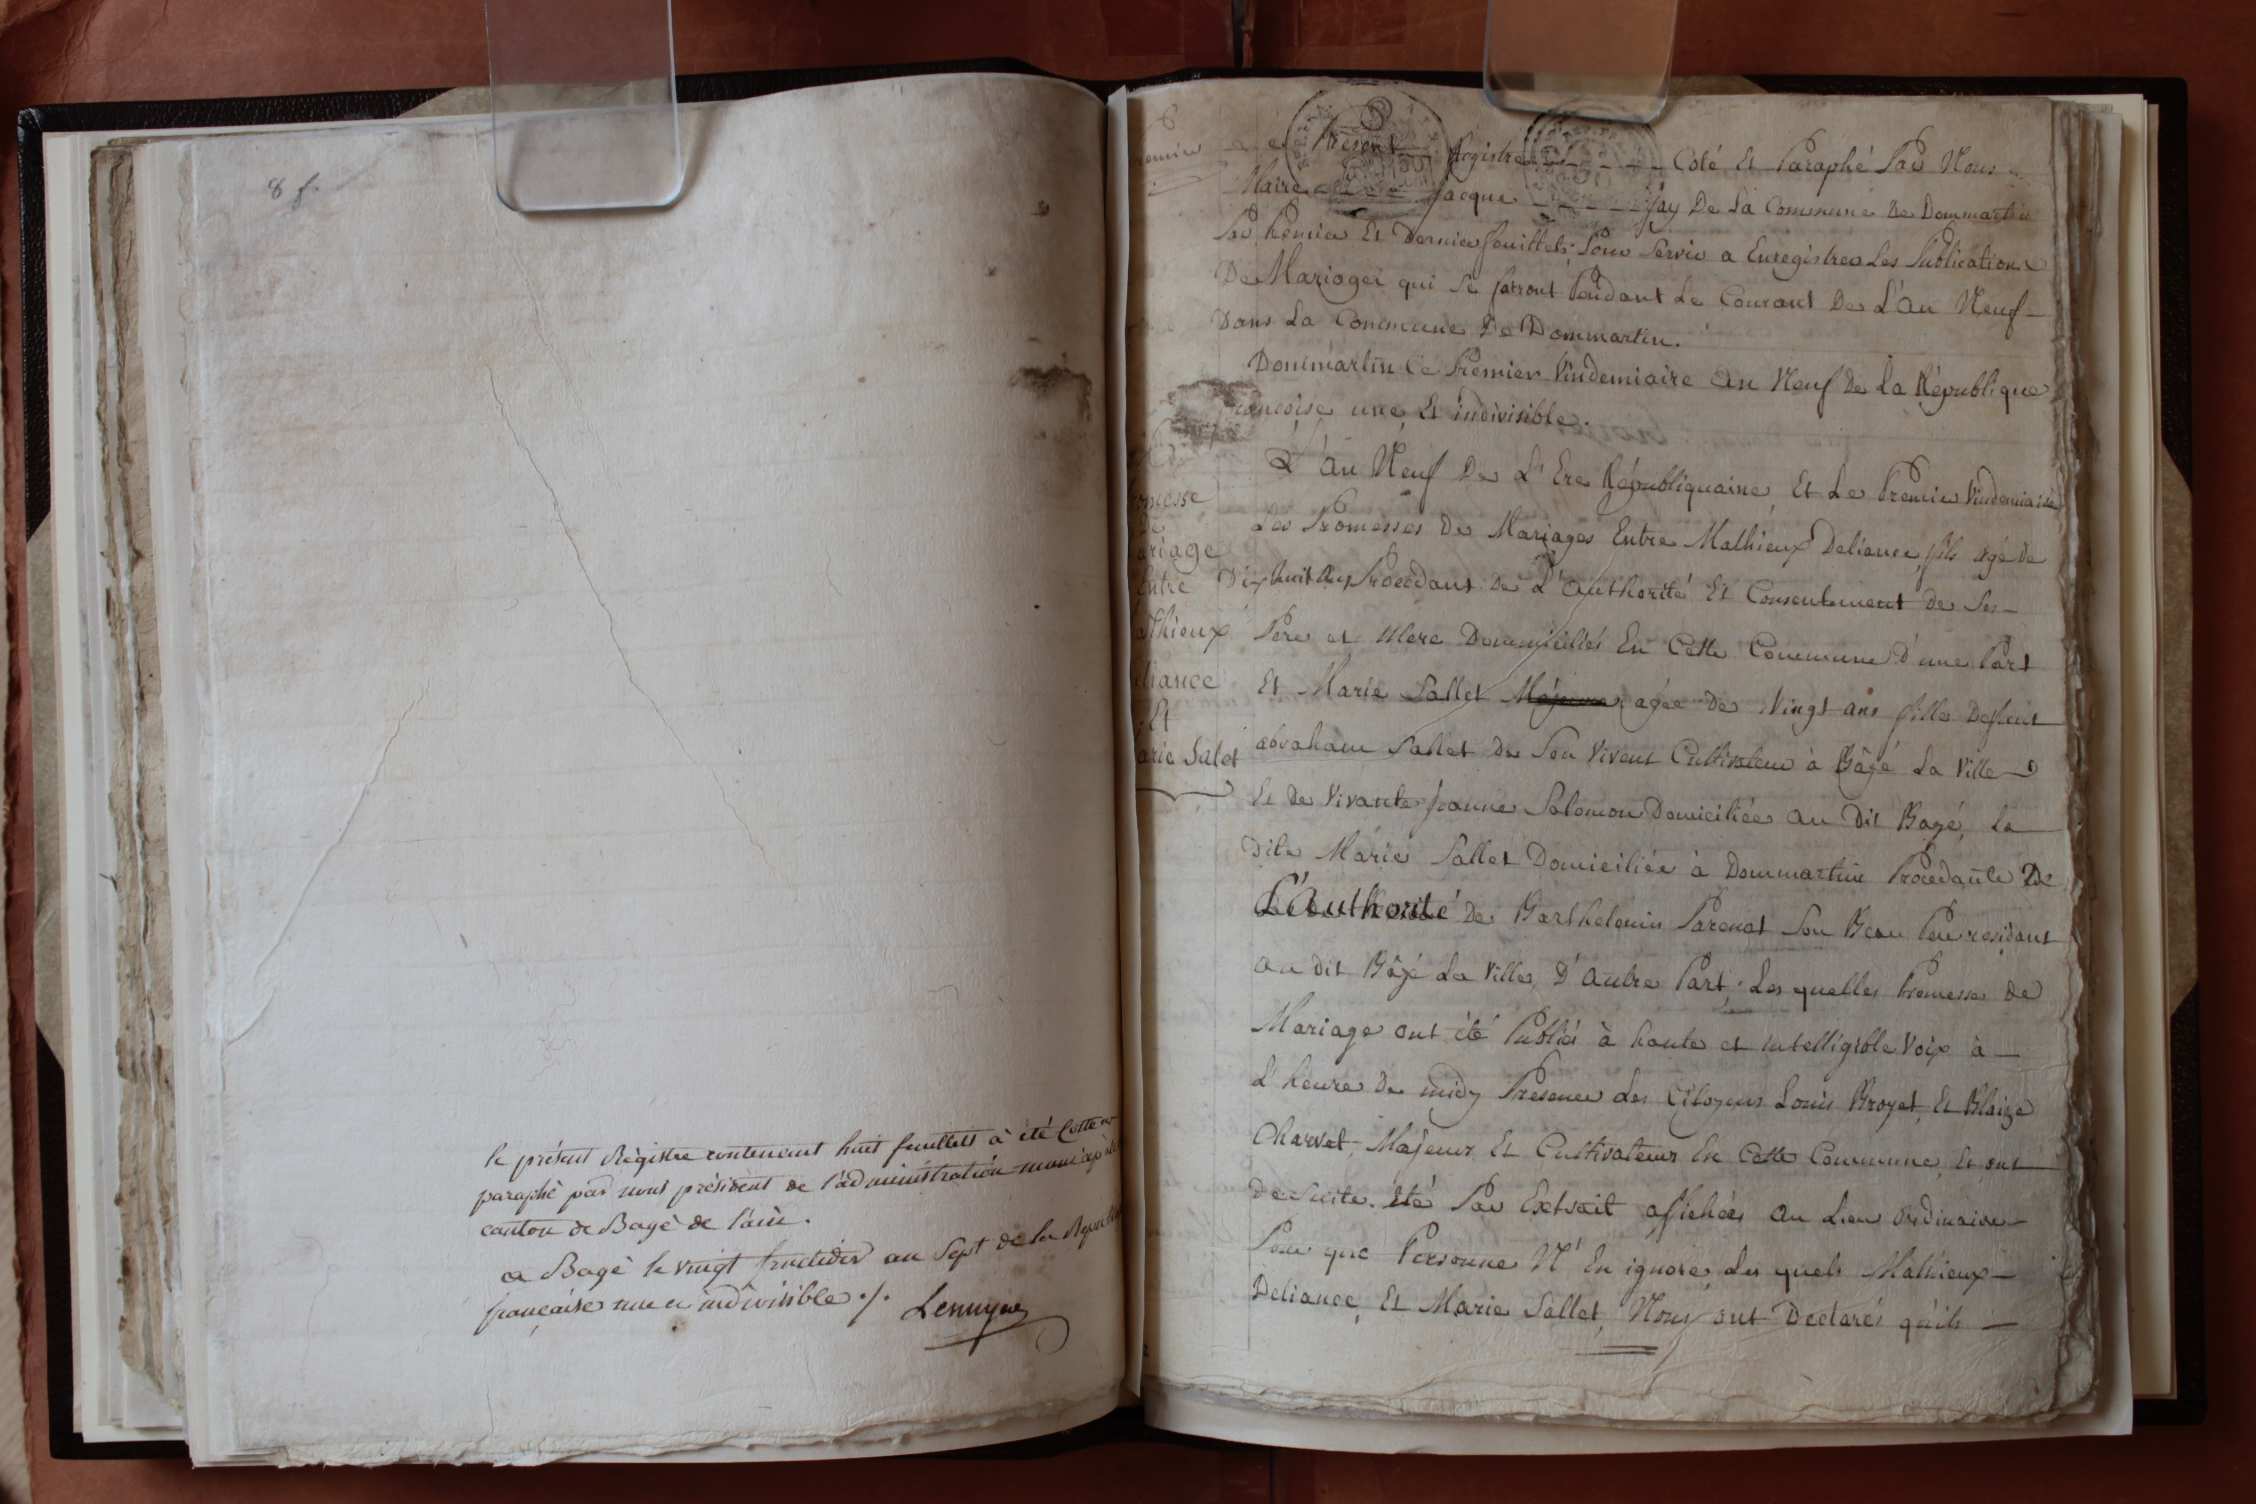 8 f.
le présent Régistre contenant huit feuillets à été Cotté et
paraphé par nous président de l'administration municipale
canton de Bagé de l'ain.
a Bagé le vingt fructidor an Sept de la Republique
française une et indivisible ./.
Le présent Registre Coté Et Paraphé Par Nous
Maire Jacque Jay De La Commune De Dommartin
Par Premier Et Dernier feuillets, Pour Servir a Enregistrer Les Publications
De Mariages qui Se feront Pendant Le Courant De L'an Neuf
Dans La Commune De Dommartin.
Dommartin Ce Premier Vindemiaire An Neuf De La République
françoise une, Et indivisible.
romesse
De
ariage
Entre
athieux
liance
Et
arie Salet
L'an Neuf De L'Ere Républiquaine, Et Le Premier Vindemiaire
Les Promesses De Mariages Entre Mathieux Deliance, fils agé de
Dix huit ans Procédant De L'Authorité Et Consentement De Ses
Pere et Mere Domiciliés En Cette Commune D'une Part
Et Marie Sallet Majeure agée De Vingt ans fille Defeut
abraham Sallet De Son Vivent Cultivateur à Bâgé La Ville
Et De Vivante Jeanne Salomon Domiciliée Au Dit Bagé, La
Dite Marie Sallet Domiciliée à Dommartin Procedante De
L'Authorité De Barthelemin Parenat Son Beau Pere residant
Au dit Bâgé La Ville, D'Autre Part; Les quelles Promesse De
Mariage ont été Publiés à haute et intelligible Voix à
L'heure De midy Presence Les Citoyens Louis Broyet, Et Blaize
Charvet, Majeurs Et Cultivateurs En Cette Commune, Et ont
De Suite été Par Extrait affichées Au Lieu Ordinaire
Pour que Personne N'En ignore, Les quels Mathieux
Deliance, Et Marie Sallet, Nous ont Declarés qu'ils